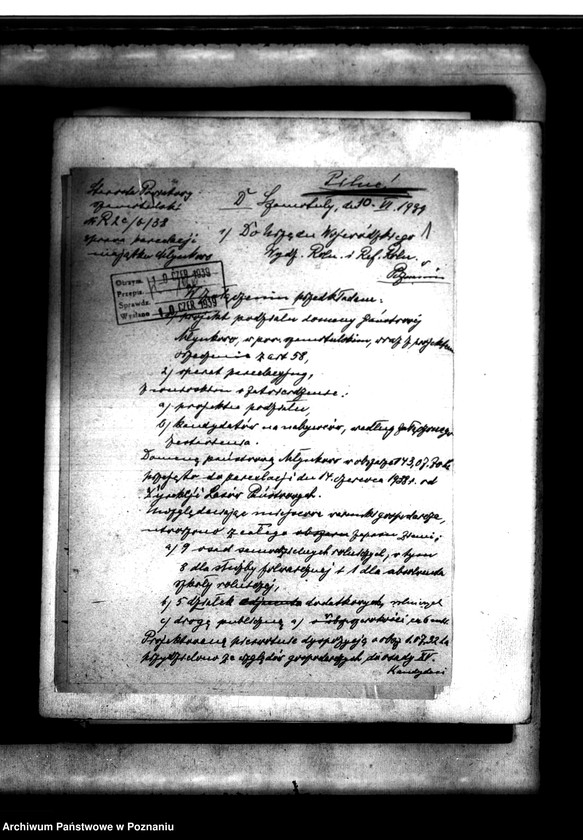 Pilne!
Starosta Powiatowy
szamotulski
Nr R 2c/6/38
sprawa parcelacji
majątku Młynkowo
D Szamotuły, d. 10. VI. 1939
1) Do Urzędu Wojewódzkiego
Wydz. Roln. i Ref. Roln.
w Poznaniu
Otrzym.
Przepis.
Sprawdz.
Wysłano
CZER. 1939
10 CZER 1939
W załączeniu przedkładam:
1) projekt podziału domeny Państwowej
Młynkowo, w pow. szamotulskim, wraz z projektem
orzeczenia z art 58,
2) operat parcelacyjny,
z wnioskiem o zatwierdzenie:
a) projektu podziału,
b) kandydatów na nabywców, według załączonego
zestawienia.
Domenę państwową Młynkowo o obszarze 143,07,70 ha
przejęto do parcelacji dn. 14. czerwca 1938 r. od
Dyrekcji Lasów Państwowych.
Uwzględniając miejscowe warunki gospodarcze,
utworzono z całego obszaru zapasu ziemi:
a) 9 osad samodzielnych rolniczych, w tym
8 dla służby folwarcznej i 1 dla absolwenta
szkoły rolniczej,
b) 5 działek dodatkowych, rolniczych
c) drogę publiczną
Projektowaną pierwotnie o obsz. 1.07.32 ha
przydzielono ze względów gospodarczych do osady XV.
Kandydaci